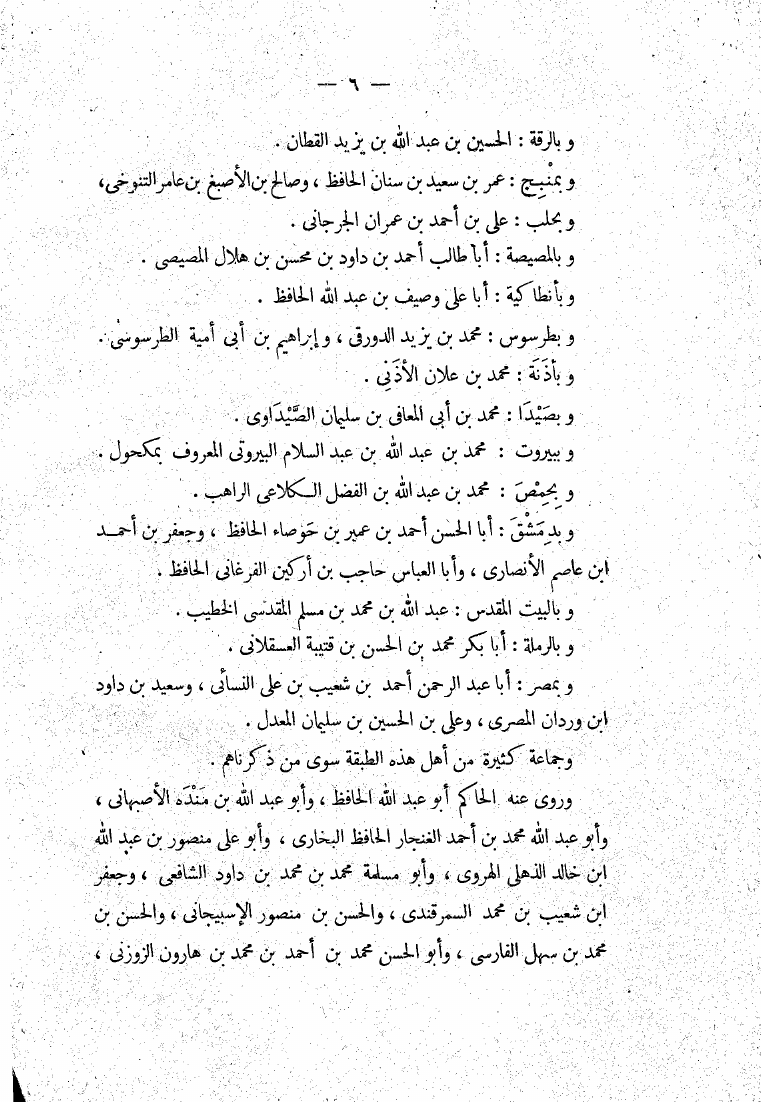 — ٦ —
و بالرقة : الحسين بن عبد الله بن يزيد القطان .
و بمَنْبِج : عمر بن سعيد بن سنان الحافظ ، وصالح بن الأصبغ بن عامر التنوخى،
و بحلب : على بن أحمد بن عمران الجرجانى .
و بالمصيصة : أبا طالب أحمد بن داود بن محسن بن هلال المصيصى .
و بأنطاكية : أبا على وصيف بن عبد الله الحافظ .
و بطرسوس : محمد بن يزيد الدورقى ، و إبراهيم بن أبى أمية الطرسوسى .
و بأَذَنَة : محمد بن علان الأذَنِى .
و بصَيْدَا : محمد بن أبى المعافى بن سليمان الصَّيْدَاوى .
و ببيروت : محمد بن عبد الله بن عبد السلام البيروتى المعروف بمكحول .
و بحِمْصَ : محمد بن عبد الله بن الفضل الكلاعى الراهب .
و بدِمَشْقَ : أبا الحسن أحمد بن عمير بن حَوصاء الحافظ ، وجعفر بن أحمد
ابن عاصم الأنصارى ، وأبا العباس حاجب بن أركين الفرغانى الحافظ .
و بالبيت المقدس : عبد الله بن محمد بن مسلم المقدسى الخطيب .
و بالرملة : أبا بكر محمد بن الحسن بن قتيبة العسقلانى .
و بمصر : أبا عبد الرحمن أحمد بن شعيب بن على النسأئى ، وسعيد بن داود
ابن وردان المصرى ، وعلى بن الحسين بن سليمان المعدل .
وجماعة كثيرة من أهل هذه الطبقة سوى من ذكرناهم .
وروى عنه الحاكم أبو عبد الله الحافظ ، وأبو عبد الله بن مَنْدَه الأصبهانى ،
وأبو عبد الله محمد بن أحمد الغنجار الحافظ البخارى ، وأبو على منصور بن عبد الله
ابن خالد الذهلى الهروى ، وأبو مسلمة محمد بن محمد بن داود الشافعى ، وجعفر
ابن شعيب بن محمد السمرقندى ، والحسن بن منصور الإسبيجانى ، والحسن بن
محمد بن سهل الفارسى ، وأبو الحسن محمد بن أحمد بن محمد بن هارون الزوزنى ،